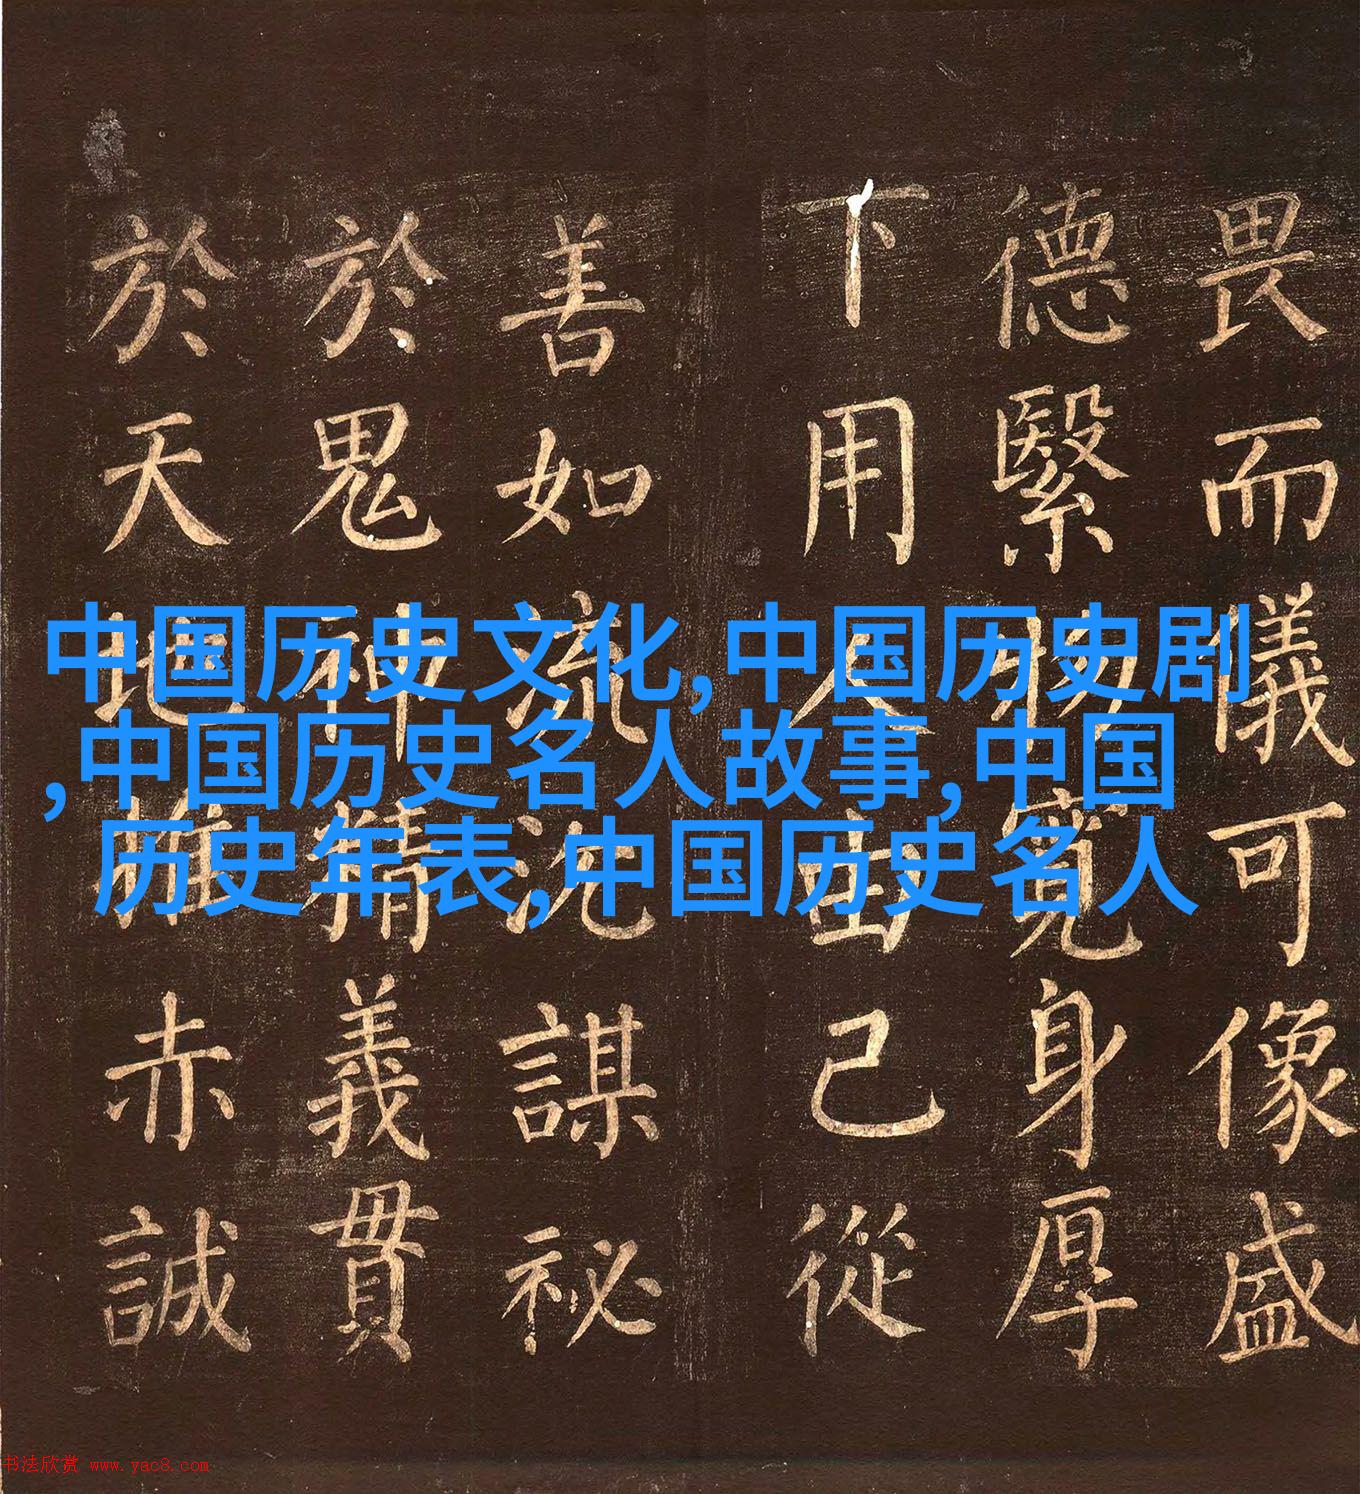 畏而儀可像盛
德繄物寬身厚
下用人由己從
善如流沈謀祕
於鬼神精義貫
於天地推赤誠
中国历史文化,中国历史剧
,中国历史名人故事,中国
历史年表,中国历史名人
书法欣赏 www.yac8.com